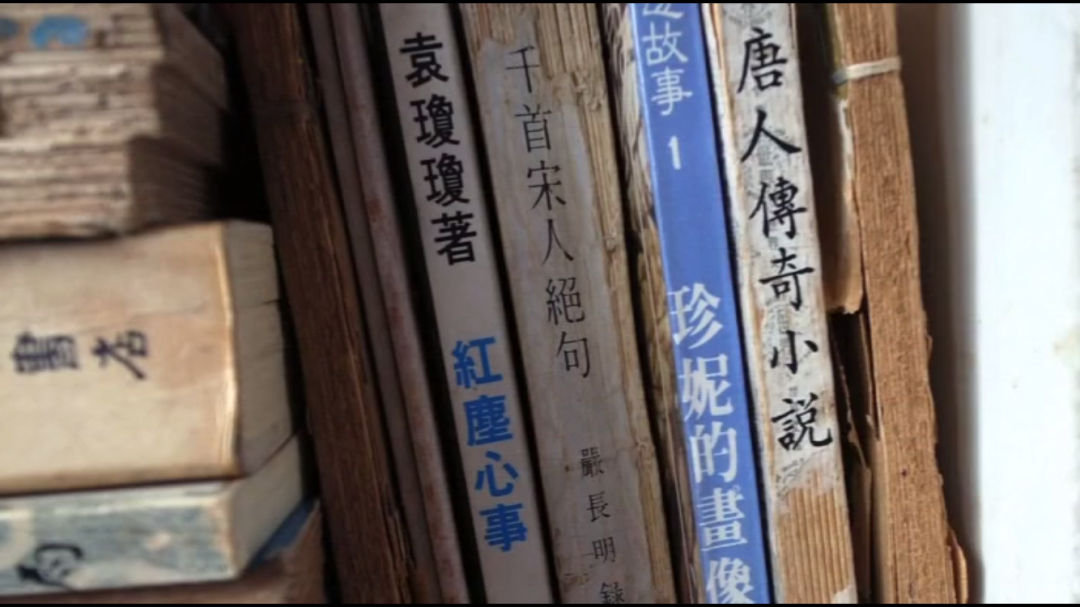 袁瓊瓊著 紅塵心事
千首宋人絕句 嚴長明錄
故事 1 珍妮的畫像
唐人傳奇小說
書店